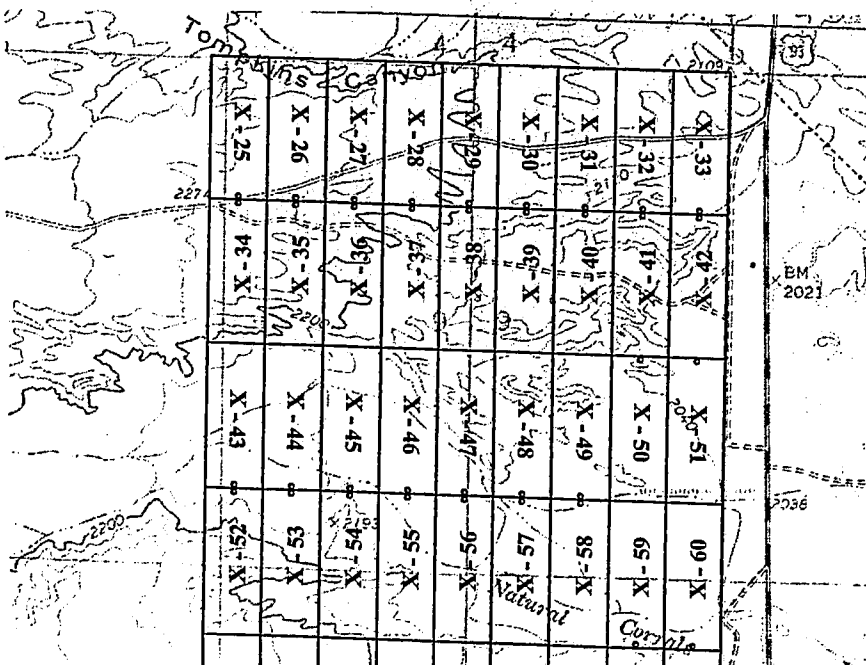 Tompkins Canyon
4 4
93
2109
X-25 X-26 X-27 X-28 X-29 X-30 X-31 X-32 X-33
2274
X-34 X-35 X-36 X-37 X-38 X-39 X-40 X-41 X-42
BM
2021
2200
9
X-43 X-44 X-45 X-46 X-47 X-48 X-49 X-50 X-51
2040
2036
2200
2193
X-52 X-53 X-54 X-55 X-56 X-57 X-58 X-59 X-60
Natural Corrals